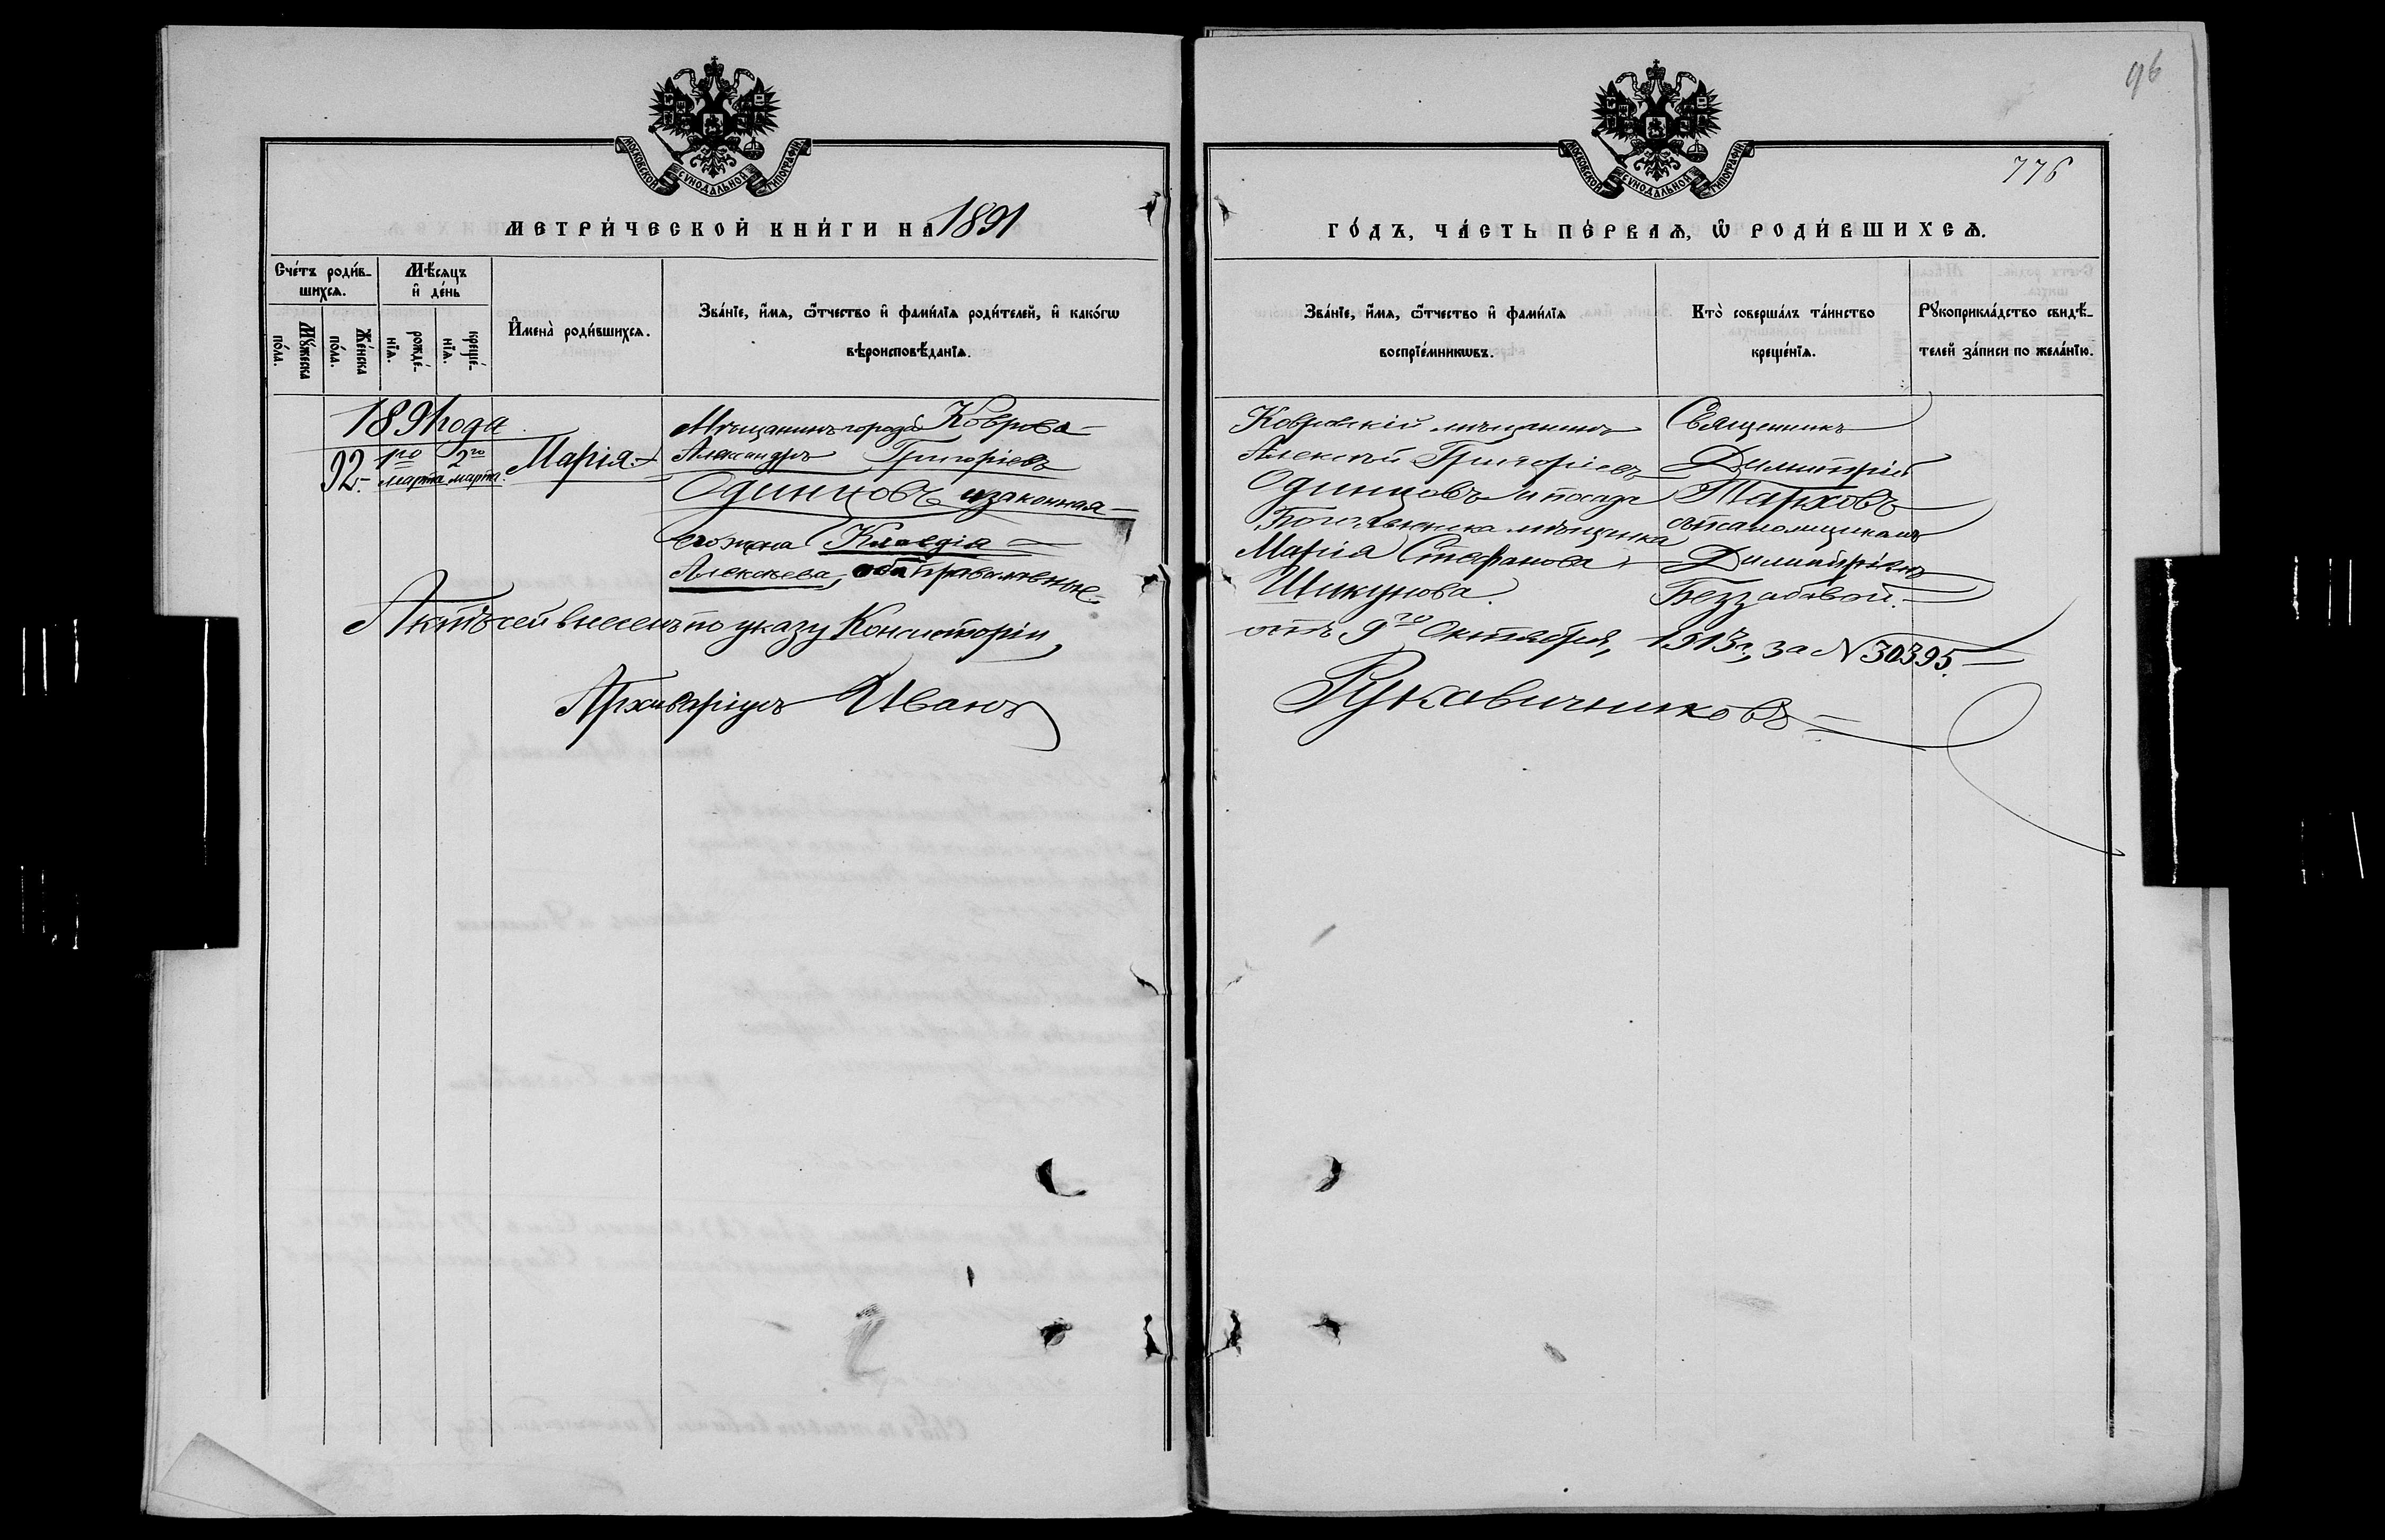 96
776
МОСКОВСКОЙ СѴНОДАЛЬНОЙ ТИПОГРАФІИ
МОСКОВСКОЙ СѴНОДАЛЬНОЙ ТИПОГРАФІИ
МЕТРИ́ЧЕСКОЙ КНИ́ГИ НА 1891
ГО́ДЪ, ЧА́СТЬ ПЕ́РВАѦ, Ѡ РОДИ́ВШИХСѦ.
Сче́тъ роди́в-
шихсѧ.
Мꙋ́жеска
по́ла.
Же́нска
по́ла.
Мѣ́сѧцъ
и҆ де́нь
рожде́-
нїѧ.
креще́-
нїѧ.
И҆мена̀ роди́вшихсѧ.
Зва́нїе, и҆́мѧ, ѻ҆́тчество и҆ фами́лїѧ роди́телей, и҆ како́гѡ
вѣроисповѣ́данїѧ.
Зва́нїе, и҆́мѧ, ѻ҆́тчество и҆ фами́лїѧ
воспрїе́мникѡвъ.
Кто̀ соверша́лъ та́инство
креще́нїѧ.
Рꙋкоприкла́дство свидѣ́-
телей за́писи по жела́нїю.
1891 года
92.
1го
марта
2го
марта.
Марія.
Мѣщанинъ города Коврова
Александръ Григоріевъ
Одинцовъ и законная
его жена Клавдія
Алексѣева, оба православные.
Ковровскій мѣщанинъ
Алексѣй Григоріевъ
Одинцовъ и посада
мѣщанка
Марія Стефанова
Шикунова.
Священникъ
Димитрій
Тарховъ
съ псаломщикомъ
Димитріемъ
Беззабавой.
Актъ сей внесенъ по указу Консисторіи,
отъ 9го Октября, 1913 г., за № 30395.
Архиваріусъ Иванъ
Рукавичниковъ